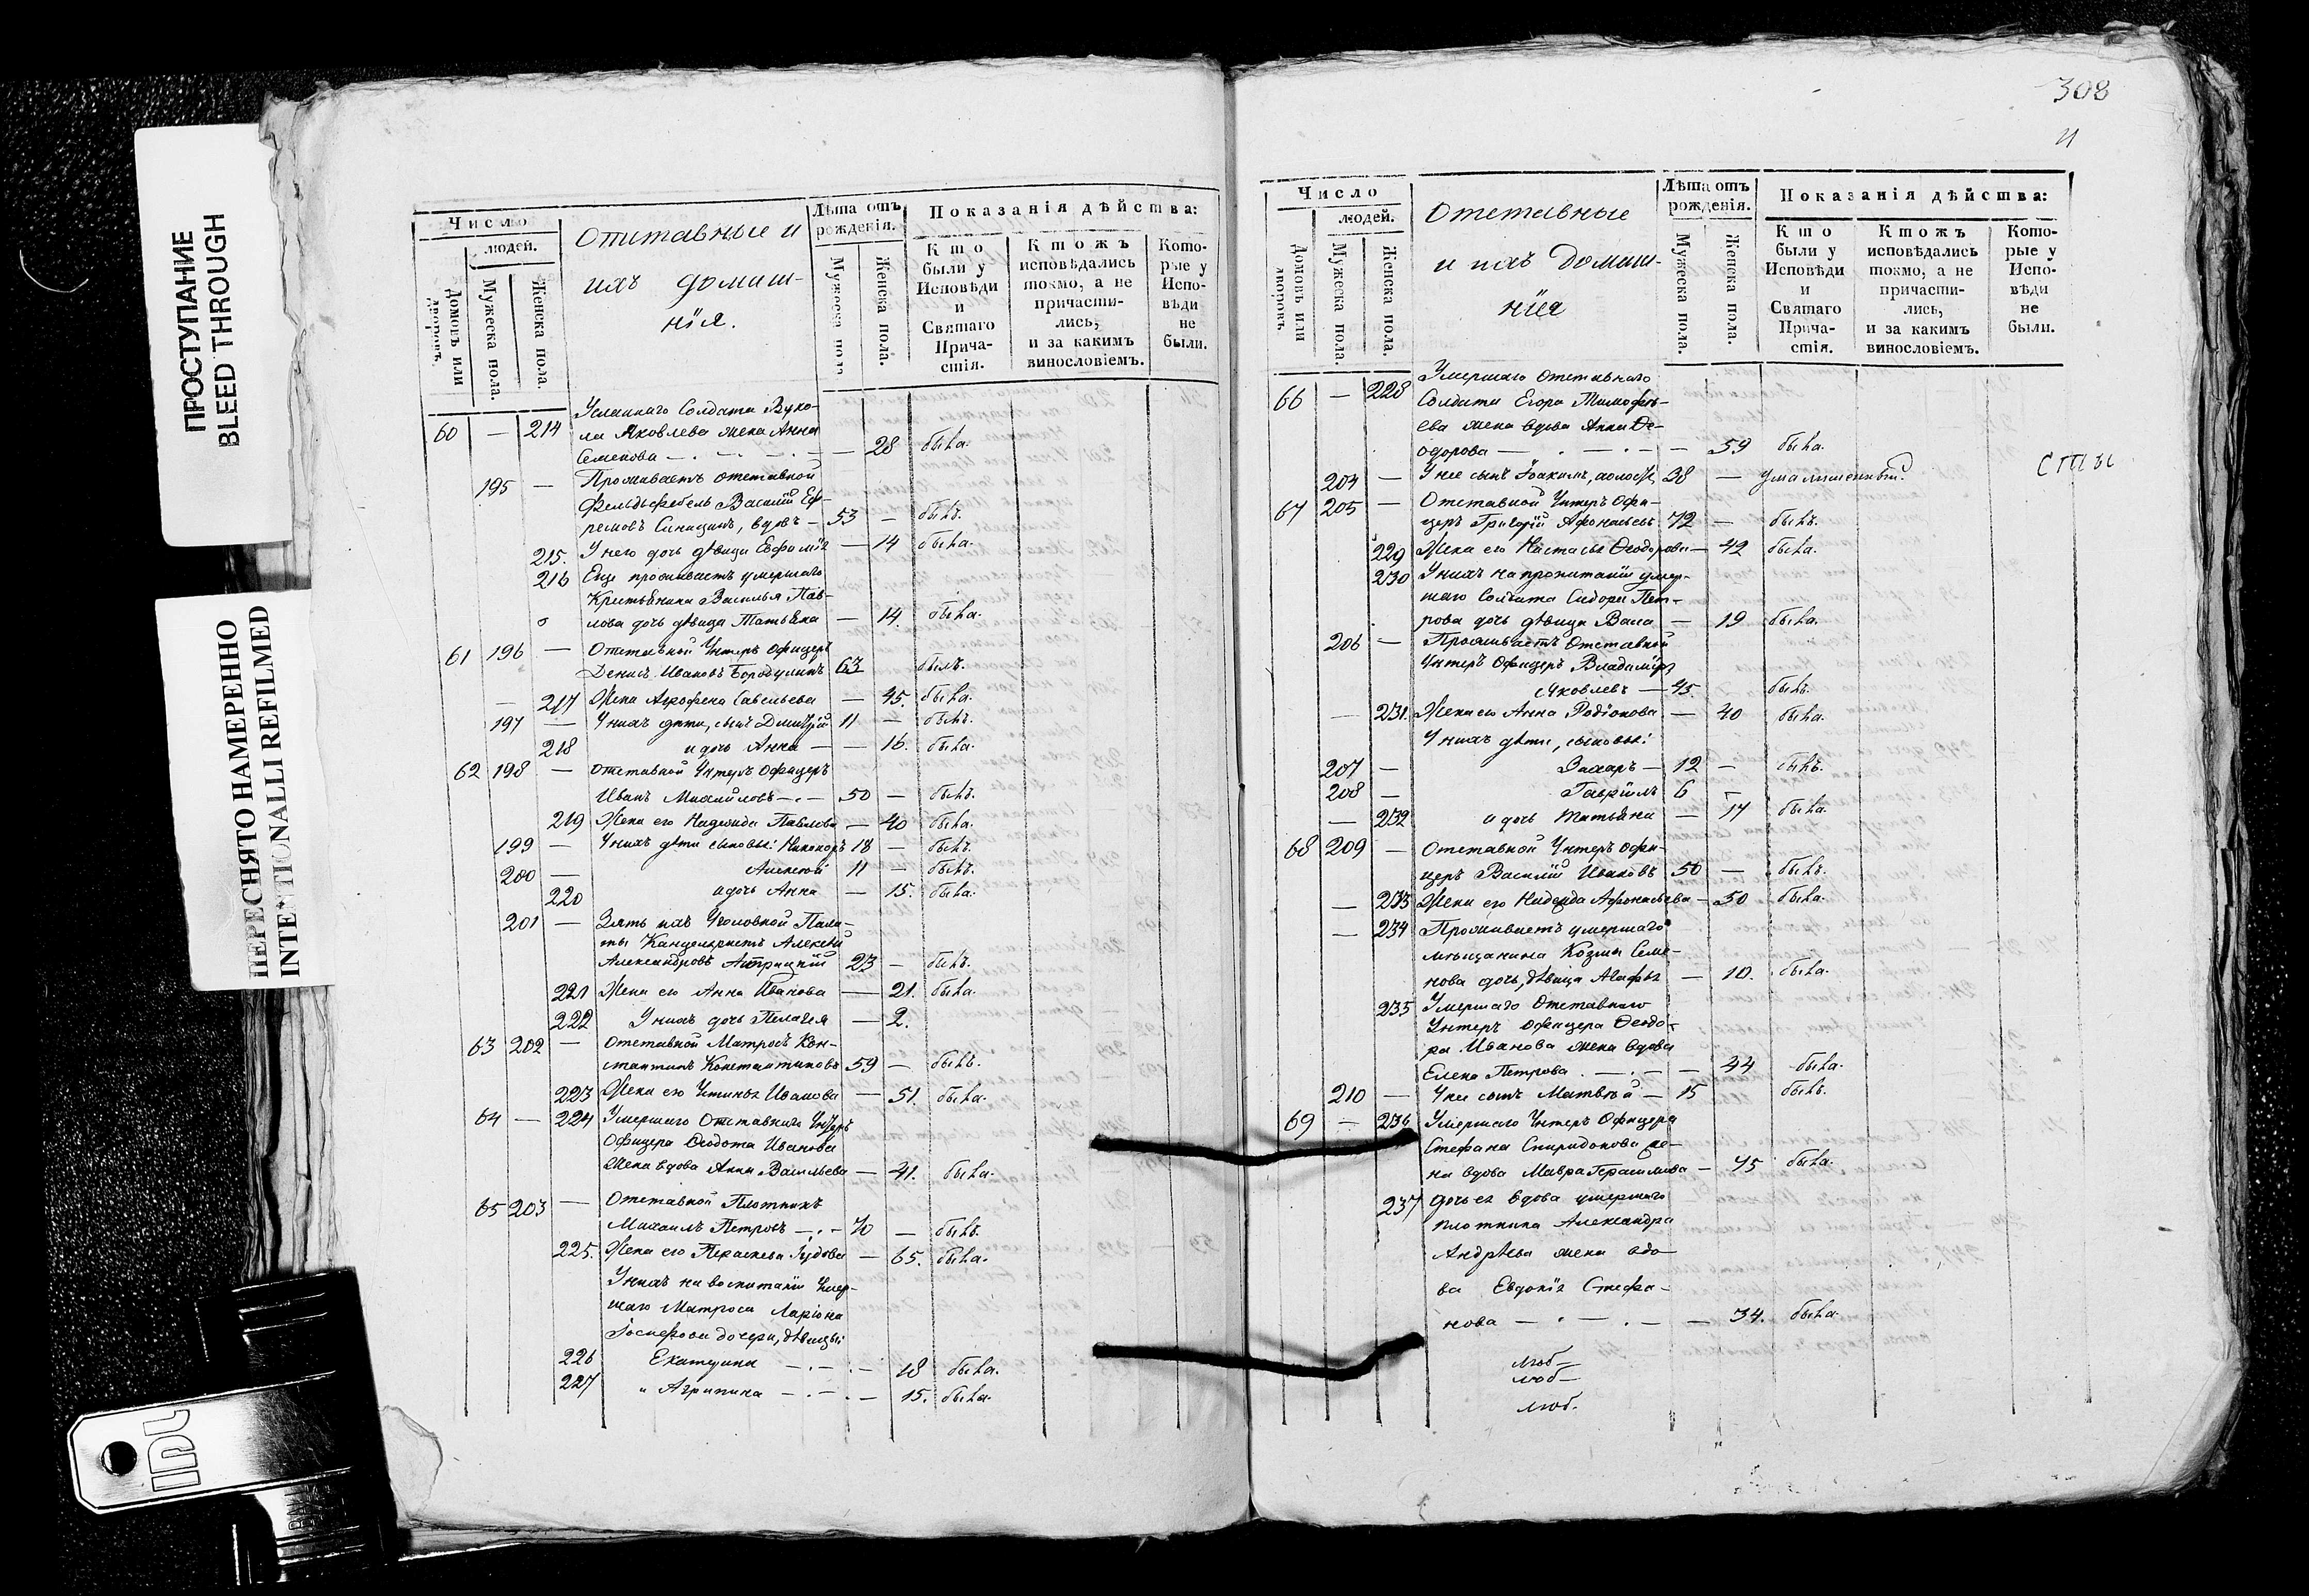 ПРОСТУПАНИЕ
BLEED THROUGH
ПЕРЕСНЯТО НАМЕРЕННО
INTENTIONALLI REFILMED
Число
людей.
Домовъ или дворовъ.
Мужеска пола.
Женска пола.
Отставные и
ихъ домаш-
нія.
Лѣта отъ рожденія.
Мужеска пола
Женска пола.
Показанія дѣйства:
Кто были у Исповѣди и Святаго Причастія.
Ктожъ исповѣдались токмо, а не причастились, и за какимъ винословіемъ.
Которые у Исповѣди не были.
60 — 214 Усланнаго Солдата Вуко-
ла Яковлева жена Анна
Семенова — 28 была.
195 — Проживаетъ отставной
Фельдьфебель Василій Еф-
ремовъ Синицынъ, вдовъ — 53 — былъ.
215. У него дочь дѣвица Евфимія — 14 была.
216 Еще проживаетъ умершаго
Крестьянина Василья Пав-
лова дочь дѣвица Татьяна — 14. была.
61 196 — Отставной Унтеръ Офицеръ
Денисъ Ивановъ Бородулинъ 63 былъ.
— 217 Жена Агрофена Савельева — 45. была.
197 — У нихъ дѣти, сынъ Дмитрій 11 — былъ.
218 и дочь Анна — — 16. была.
62 198 — Отставной Унтеръ Офицеръ
Иванъ Михайловъ — 50 — былъ.
219 Жена его Надежда Павлова — 40 была.
199 — У нихъ дѣти сыновья: Никаноръ 18 — былъ.
200 — Алексѣй 11 — былъ.
220 и дочь Анна — 15. была.
201 — Зять ихъ Уголовной Пала-
ты Канцеляристъ Алексѣй
Александровъ 23 — былъ.
221 Жена его Анна Иванова — 21. была.
222 У нихъ дочь Пелагея — 2.
63 202 — Отставной Матросъ Кон-
стантинъ Константиновъ 59 — былъ.
223 Жена его Устинья Иванова — 51. была.
64 — 224 Умершаго Отставнаго Унтеръ
Офицера Ѳеодота Иванова
жена вдова Анна Васильева — 41. была.
65 203 — Отставной Плотникъ
Михаилъ Петровъ — 70 — былъ.
225. Жена его Параскева — 65. была.
У нихъ на воспитаніи Умер-
шаго Матроса Ларіона
Іосифова дочери, дѣвицы:
226 Екатерина — 18 была.
227 Агрипина — 15. была.
308
Число
людей.
Домовъ или дворовъ.
Мужеска пола.
Женска пола.
Отставные
и ихъ домаш-
нія
Лѣта отъ рожденія.
Мужеска пола.
Женска пола.
Показанія дѣйства:
Кто были у Исповѣди и Святаго Причастія.
Ктожъ исповѣдались токмо, а не причастились, и за какимъ винословіемъ.
Которые у Исповѣди не были.
66 — 228 Умершаго отставнаго
Солдата Егора Тимофѣ-
ева жена вдова Анна Ѳе-
одорова — 59 была.
204 — У нее сынъ Іоакимъ, холостъ, 38 — ума лишенный.
67 205 — Отставной Унтеръ Офи-
церъ Григорій Афонасьевъ 72 — былъ.
229 Жена его Настасья Ѳеодорова — 42 была.
230 У нихъ на пропитаніи умер-
шаго Солдата Сидора Пет-
рова дочь дѣвица — 19 была.
206 — Проживаетъ Отставной
Унтеръ Офицеръ Владиміръ
Яковлевъ — 45. былъ.
— 231. Жена его Анна Родіонова — 40 была.
У нихъ дѣти, сыновья:
207 — Захаръ — 12 — былъ.
208 — Гавріилъ 6 —
— 232 и дочь Татьяна — 17 была.
68 209 — Отставной Унтеръ Офи-
церъ Василій Ивановъ 50 — былъ.
— 233 Жена его Надежда Афонасьева — 50 была.
— 234 Проживаетъ умершаго
мѣщанина Козмы Семе-
нова дочь, дѣвица Агафья — 10. была.
235 Умершаго Отставнаго
Унтеръ Офицера Ѳеодо-
ра Иванова жена вдова
Елена Петрова — 44 была.
210 — У нее сынъ Матвѣй — 15 былъ.
69 — 236 Умершаго Унтеръ Офицера
Стефана Спиридонова же-
на вдова Мавра Герасимова — 75 была.
237 Дочь ея вдова умершаго
плотника Александра
Андрѣева жена вдо-
ва Евдокія Стефа-
нова — 34. была.